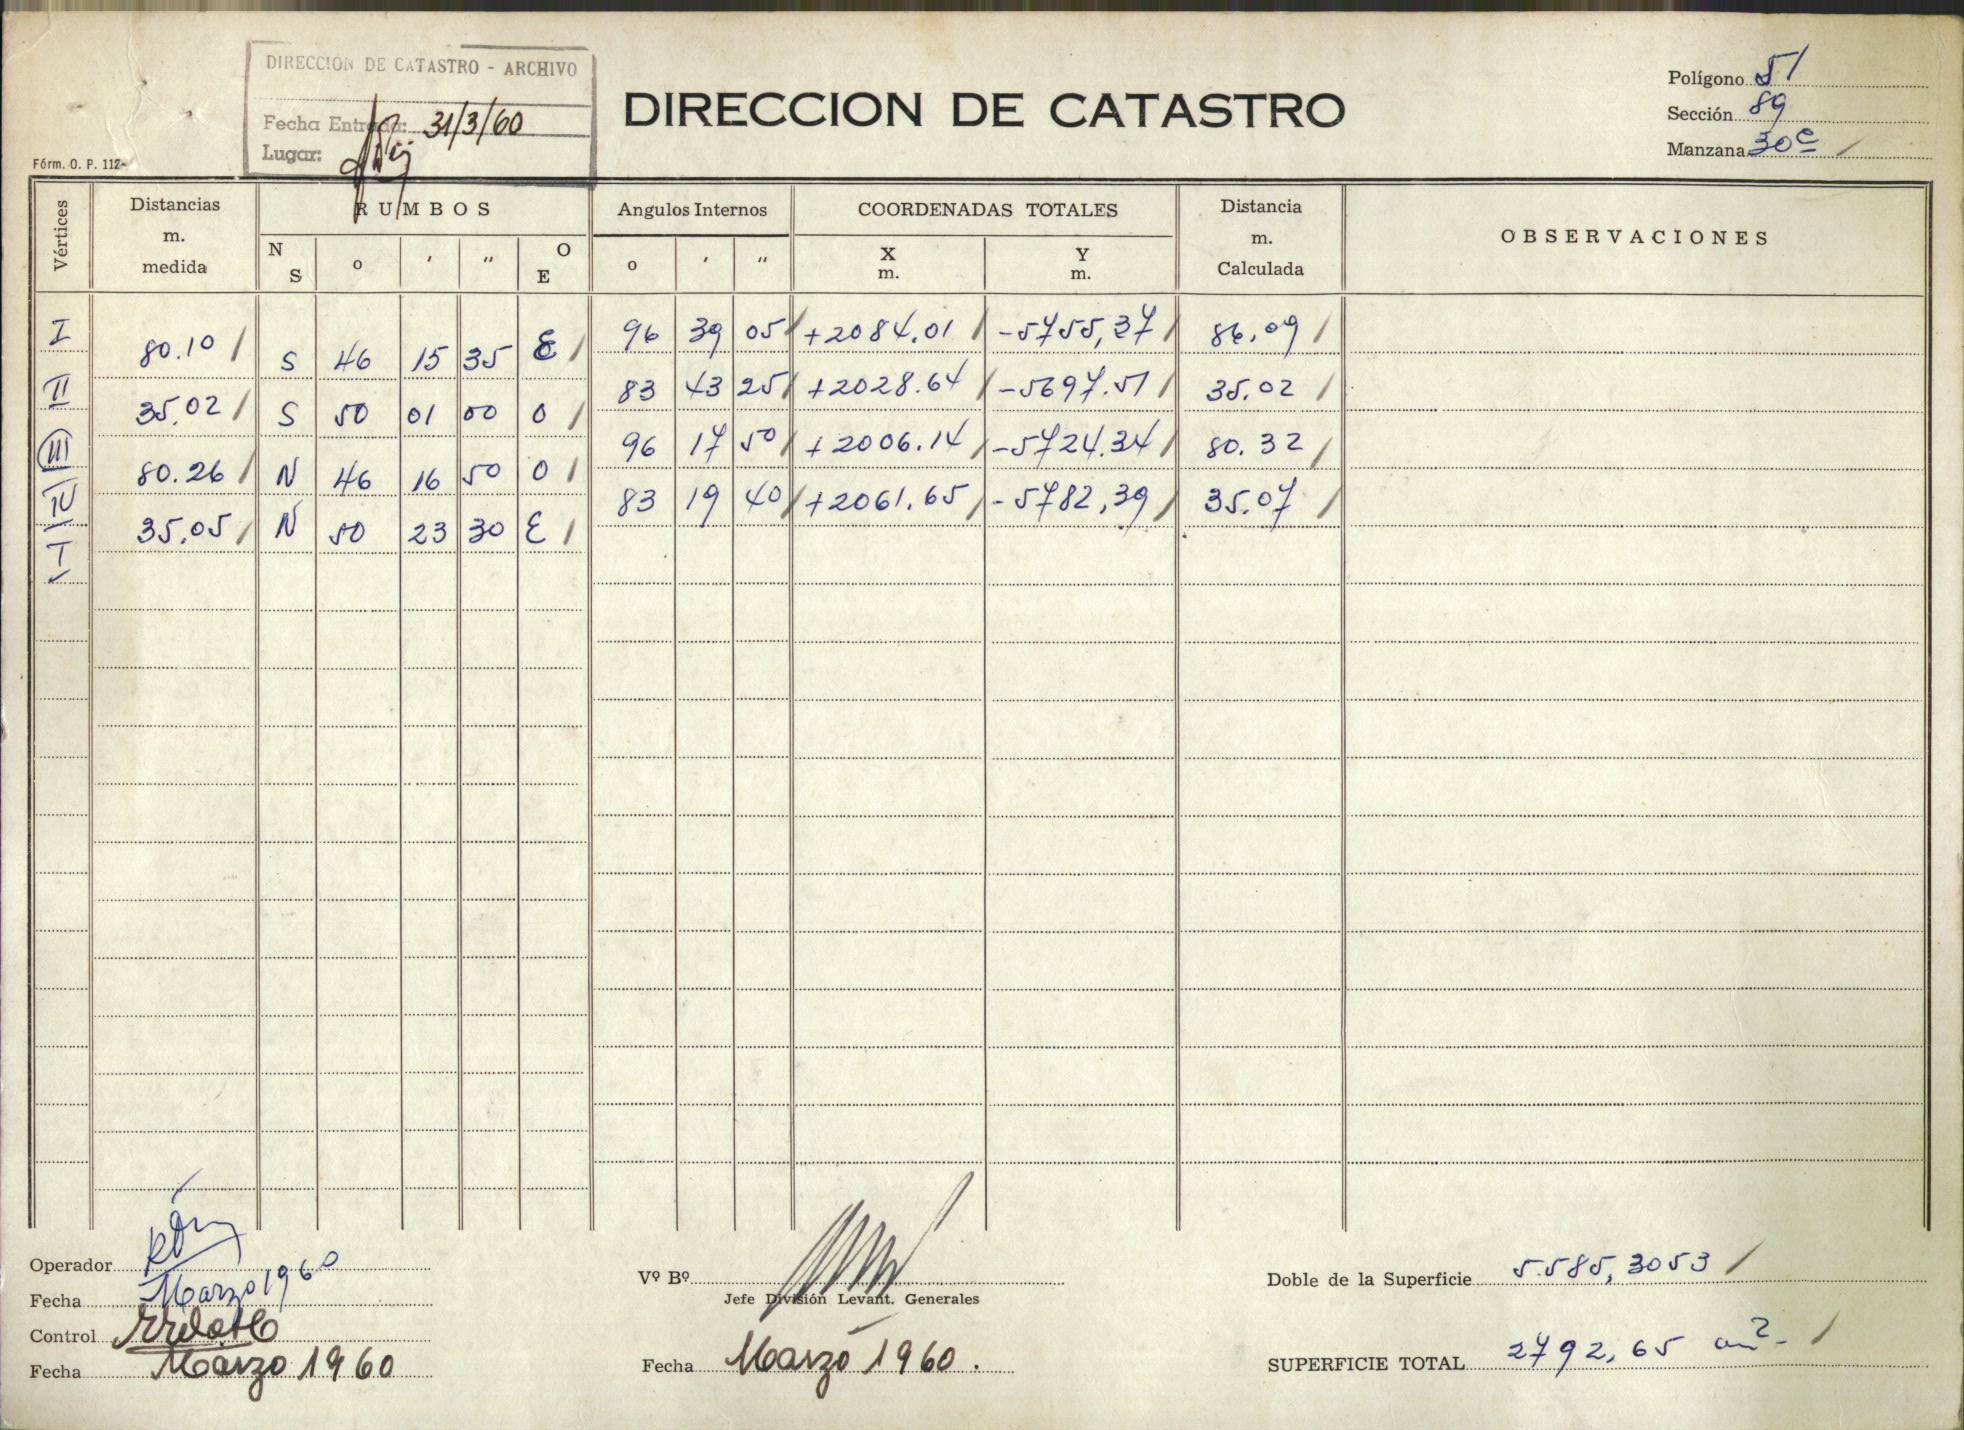 DIRECCION DE CATASTRO - ARCHIVO
Fecha Entrada: 31/3/60
Lugar:
DIRECCION DE CATASTRO
Polígono 51
Sección 89
Manzana 30e
Fórm. O. P. 112-
Vértices Distancias m. medida RUMBOS Angulos Internos COORDENADAS TOTALES Distancia m. Calculada OBSERVACIONES
N S o ' " O E o ' " X m. Y m.
I 96 39 05 +2084.01 -5755,37 80.09
80.10 S 46 15 35 E
II 83 43 25 +2028.64 -5697.51 35.02
35.02 S 50 01 00 O
III 96 17 50 +2006.14 -5724.34 80.32
80.26 N 46 16 50 O
IV 83 19 40 +2061.65 -5782,39 35.07
35.05 N 50 23 30 E
I
Operador
Fecha Marzo 1960
Control
Fecha Marzo 1960
Vº Bº
Jefe División Levant. Generales
Fecha Marzo 1960.
Doble de la Superficie 5.585,3053
SUPERFICIE TOTAL 2792,65 m2-